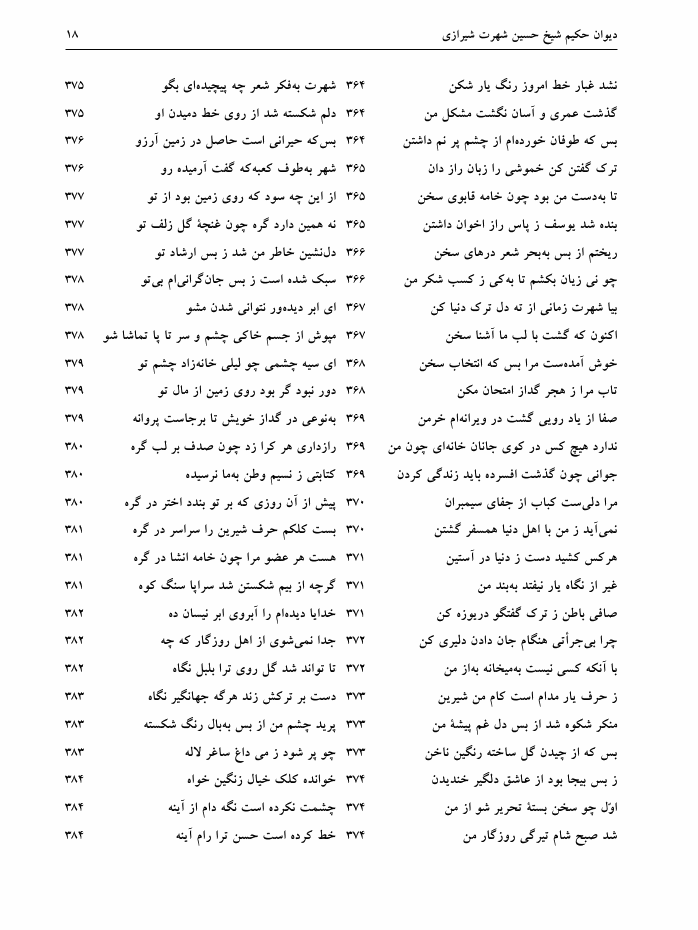 دیوان حکیم شیخ حسین شهرت شیرازی ۱۸
نشد غبار خط امروز رنگ یار شکن ۳۶۴
گذشت عمری و آسان نگشت مشکل من ۳۶۴
بس که طوفان خورده‌ام از چشم پر نم داشتن ۳۶۴
ترک گفتن کن خموشی را زبان راز دان ۳۶۵
تا به‌دست من بود چون خامه قابوی سخن ۳۶۵
بنده شد یوسف ز پاس راز اخوان داشتن ۳۶۵
ریختم از بس به‌بحر شعر درهای سخن ۳۶۶
چو نی زیان بکشم تا به‌کی ز کسب شکر من ۳۶۶
بیا شهرت زمانی از ته دل ترک دنیا کن ۳۶۷
اکنون که گشت با لب ما آشنا سخن ۳۶۷
خوش آمده‌ست مرا بس که انتخاب سخن ۳۶۸
تاب مرا ز هجر گداز امتحان مکن ۳۶۸
صفا از یاد رویی گشت در ویرانه‌ام خرمن ۳۶۹
ندارد هیچ کس در کوی جانان خانه‌ای چون من ۳۶۹
جوانی چون گذشت افسرده باید زندگی کردن ۳۶۹
مرا دلی‌ست کباب از جفای سیمبران ۳۷۰
نمی‌آید ز من با اهل دنیا همسفر گشتن ۳۷۰
هرکس کشید دست ز دنیا در آستین ۳۷۱
غیر از نگاه یار نیفتد به‌بند من ۳۷۱
صافی باطن ز ترک گفتگو دریوزه کن ۳۷۱
چرا بی‌جرأتی هنگام جان دادن دلیری کن ۳۷۲
با آنکه کسی نیست به‌میخانه به‌از من ۳۷۲
ز حرف یار مدام است کام من شیرین ۳۷۳
منکر شکوه شد از بس دل غم پیشۀ من ۳۷۳
بس که از چیدن گل ساخته رنگین ناخن ۳۷۳
ز بس بیجا بود از عاشق دلگیر خندیدن ۳۷۴
اوّل چو سخن بستۀ تحریر شو از من ۳۷۴
شد صبح شام تیرگی روزگار من ۳۷۴
شهرت به‌فکر شعر چه پیچیده‌ای بگو ۳۷۵
دلم شکسته شد از روی خط دمیدن او ۳۷۵
بس‌که حیرانی است حاصل در زمین آرزو ۳۷۶
شهر به‌طوف کعبه‌که گفت آرمیده رو ۳۷۶
از این چه سود که روی زمین بود از تو ۳۷۷
نه همین دارد گره چون غنچۀ گل زلف تو ۳۷۷
دل‌نشین خاطر من شد ز بس ارشاد تو ۳۷۷
سبک شده است ز بس جان‌گرانی‌ام بی‌تو ۳۷۸
ای ابر دیده‌ور نتوانی شدن مشو ۳۷۸
مپوش از جسم خاکی چشم و سر تا پا تماشا شو ۳۷۸
ای سیه چشمی چو لیلی خانه‌زاد چشم تو ۳۷۹
دور نبود گر بود روی زمین از مال تو ۳۷۹
به‌نوعی در گداز خویش تا برجاست پروانه ۳۷۹
رازداری هر کرا زد چون صدف بر لب گره ۳۸۰
کتابتی ز نسیم وطن به‌ما نرسیده ۳۸۰
پیش از آن روزی که بر تو بندد اختر در گره ۳۸۰
بست کلکم حرف شیرین را سراسر در گره ۳۸۱
هست هر عضو مرا چون خامه انشا در گره ۳۸۱
گرچه از بیم شکستن شد سراپا سنگ کوه ۳۸۱
خدایا دیده‌ام را آبروی ابر نیسان ده ۳۸۲
جدا نمی‌شوی از اهل روزگار که چه ۳۸۲
تا تواند شد گل روی ترا بلبل نگاه ۳۸۲
دست بر ترکش زند هرگه جهانگیر نگاه ۳۸۳
پرید چشم من از بس به‌بال رنگ شکسته ۳۸۳
چو پر شود ز می داغ ساغر لاله ۳۸۳
خوانده کلک خیال زنگین خواه ۳۸۴
چشمت نکرده است نگه دام از آینه ۳۸۴
خط کرده است حسن ترا رام آینه ۳۸۴